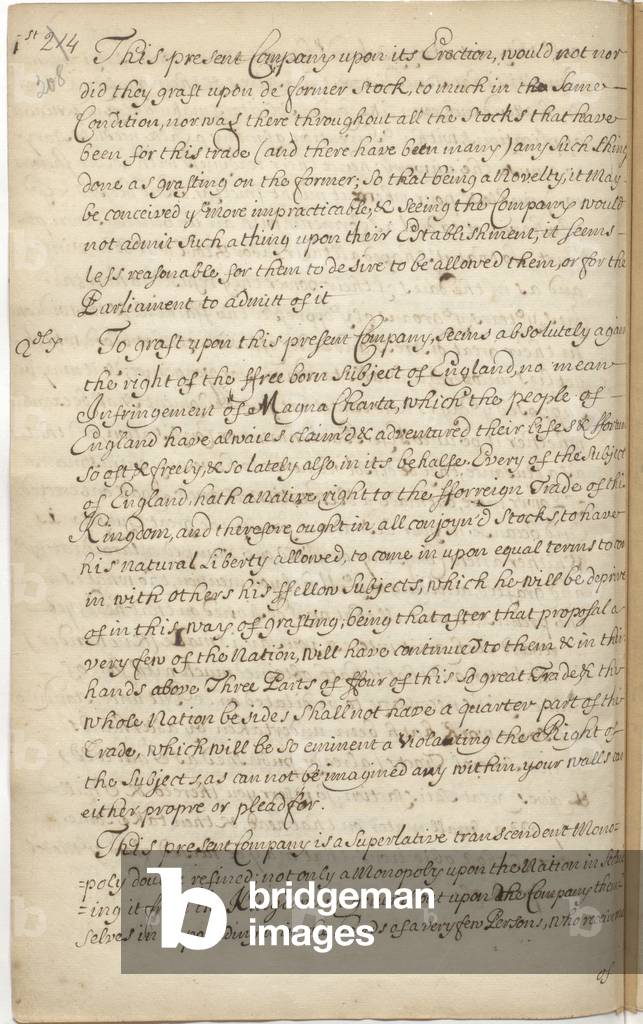 1st 214
308
This present Company upon its Erection, would not nor
did they graft upon de former Stock, to much in the Same
Condition, nor was there throughout all the Stocks that have
been for this trade (and there have been many) any Such thing
done as grafting on the former; So that being a Novelty, it May
be conceived ye more impracticable, & Seeing the Company would
not admit Such a thing upon their Establishment, it seems
less reasonable for them to desire to be allowed them, or for the
Parliament to admitt of it
2dly To graft upon this present Company, seems absolutely again
the right of the ffree born Subject of England, no mean
Infringement of Magna Charta, which the people of
England have alwaies claim'd & adventured their lifes & ffortun
so oft & freely, & so lately also in its behalfe. Every of the Subject
of England, hath a Native right to the fforreign Trade of thi
Kingdom, and therefore ought in all conjoyn'd Stocks, to have
his natural Liberty allowed, to come in upon equal terms to
in with others his ffellow Subjects, which he will be deprive
of in this way of grafting; being that after that proposal a
very few of the Nation, will have continued to them & in thi
hands above Three Parts of ffour of this so great Trade & the
whole Nation besides Shall not have a quarter part of the
Trade, which will be so eminent a Violating the Right of
the Subjects, as can not be imagined any within your walls
either propre or plead for.
This present Company is a Superlative transcendent Mono-
=poly double refined; not only a Monopoly upon the Nation in
=ing it upon the Company them-
selves in of a very few Persons, who
of
bridgeman
images